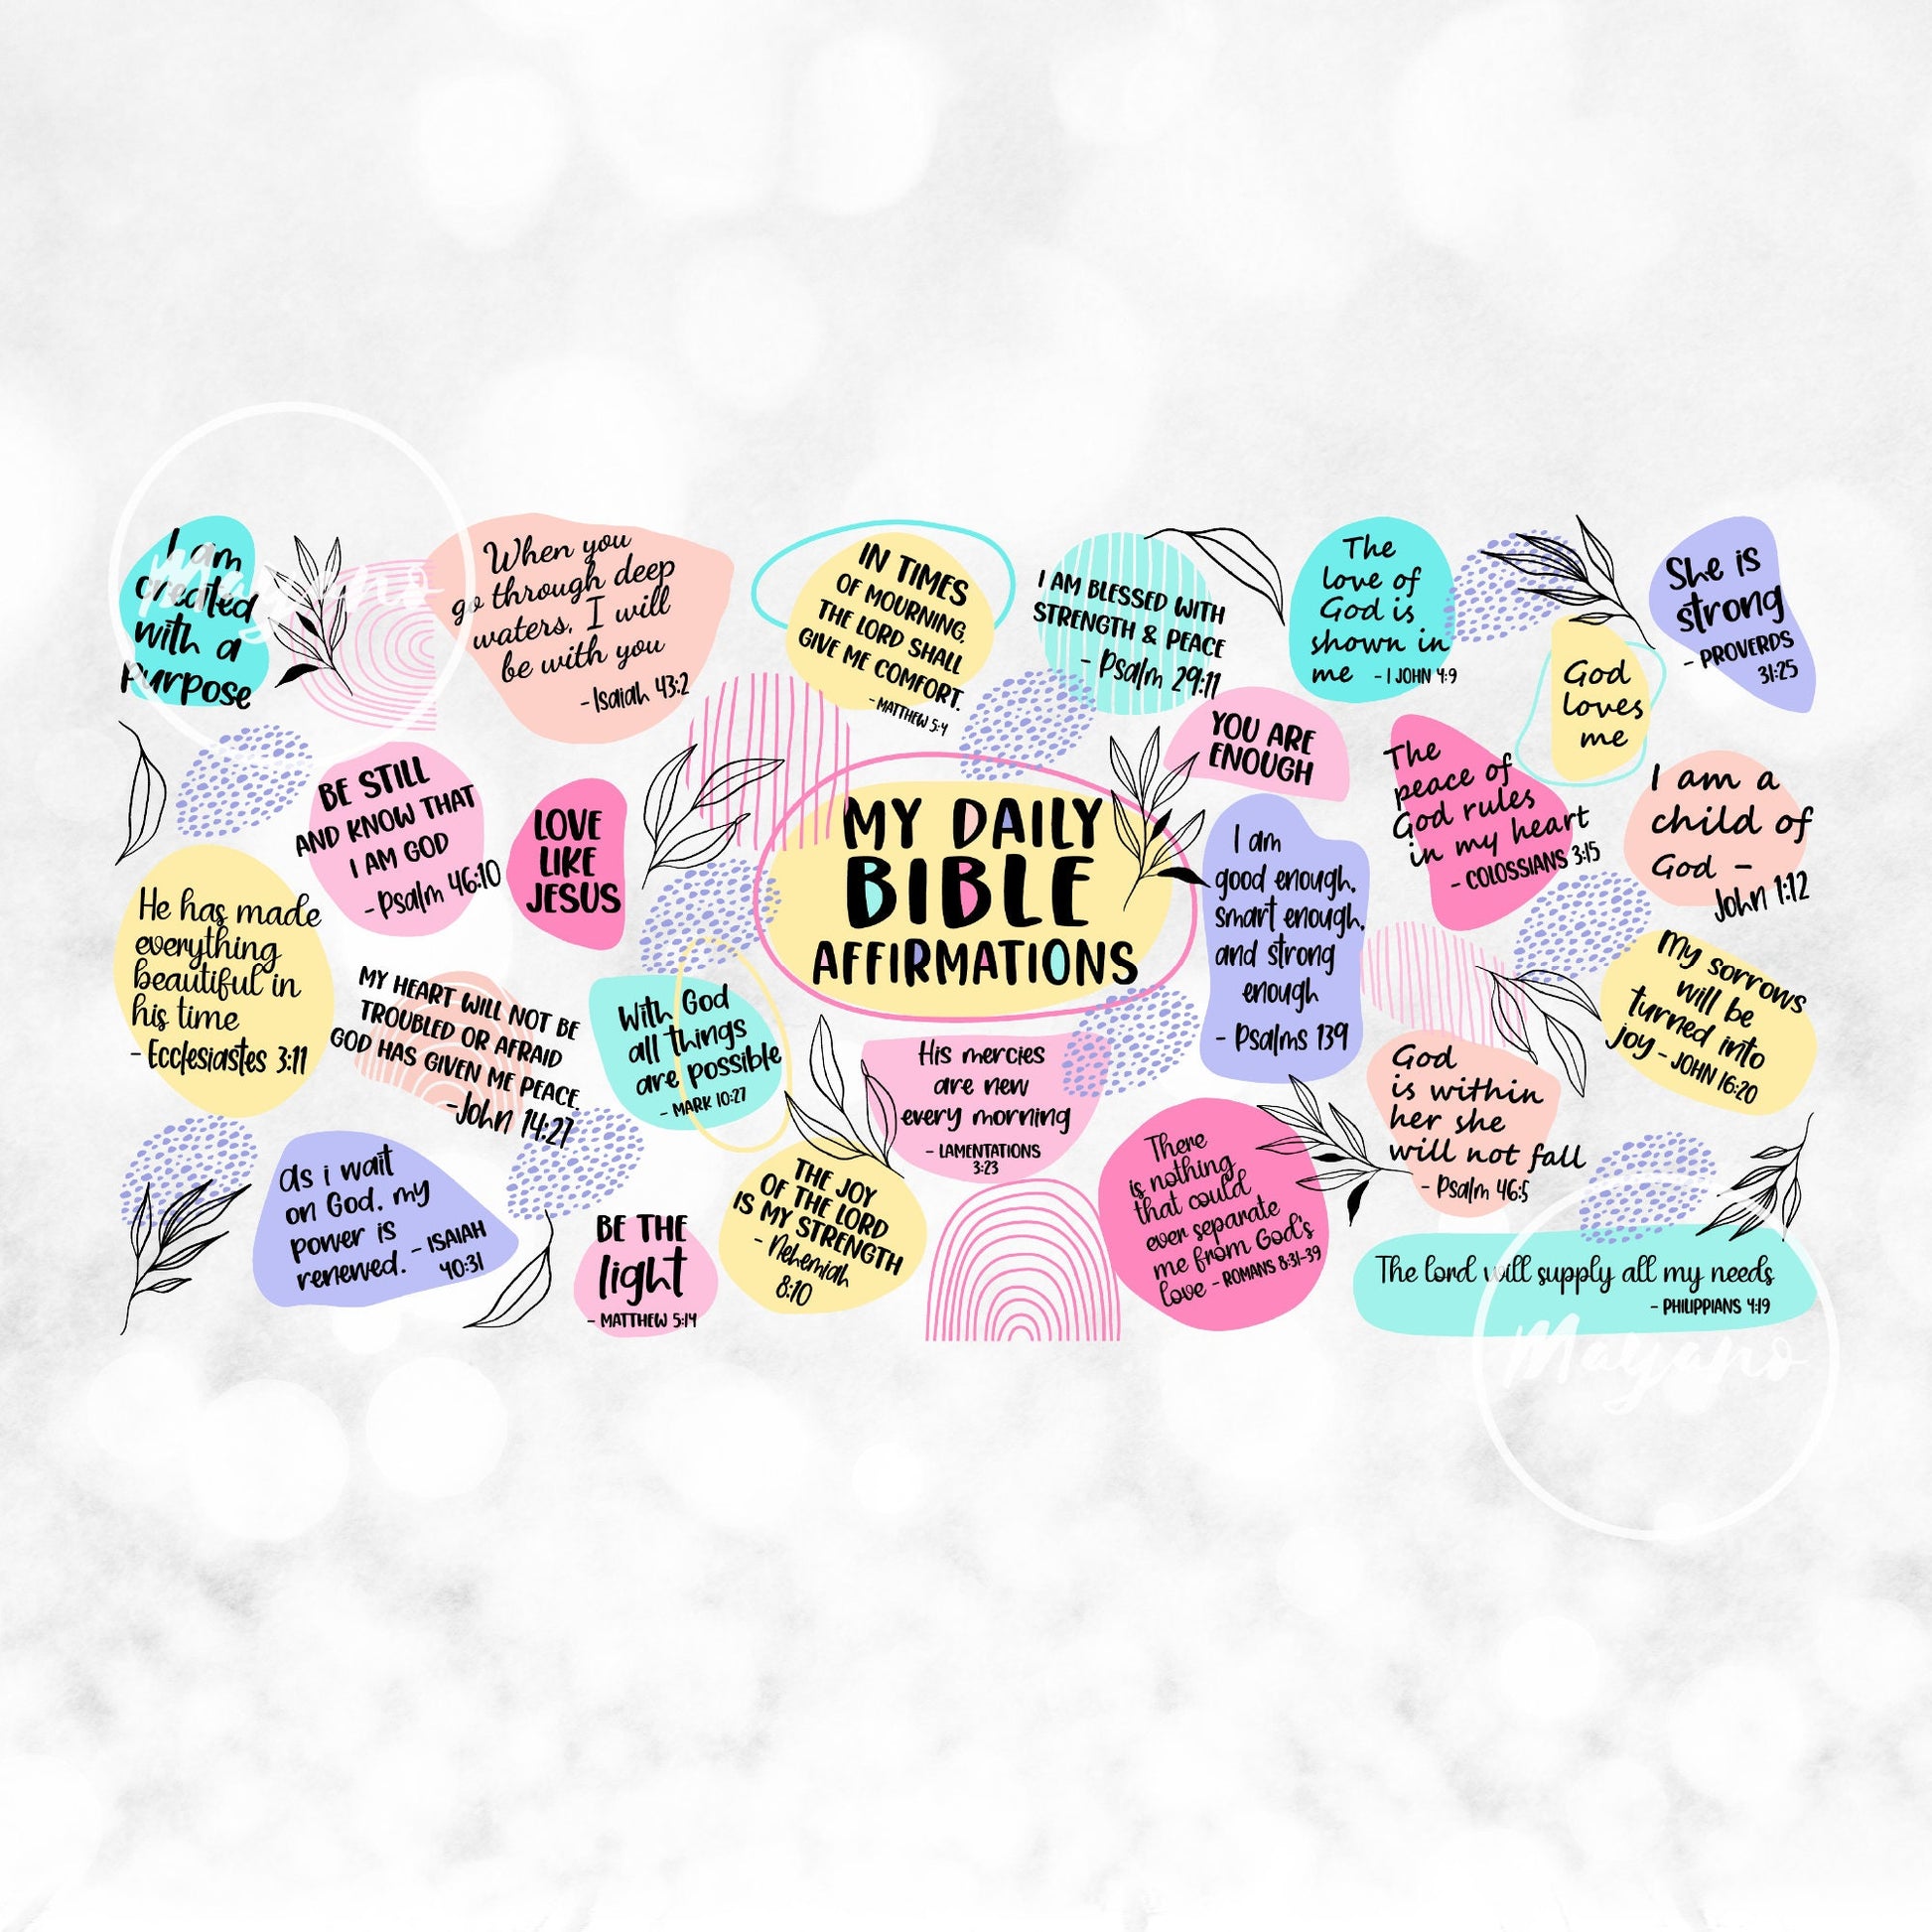 I am
created
with a
purpose
When you
go through deep
waters, I will
be with you
- Isaiah 43:2
IN TIMES
OF MOURNING,
THE LORD SHALL
GIVE ME COMFORT.
- MATTHEW 5:4
I AM BLESSED WITH
STRENGTH & PEACE
- Psalm 29:11
The
love of
God is
shown in
me - 1 JOHN 4:9
God
loves
me
She is
strong
- PROVERBS
31:25
BE STILL
AND KNOW THAT
I AM GOD
- Psalm 46:10
LOVE
LIKE
JESUS
MY DAILY
BIBLE
AFFIRMATIONS
YOU ARE
ENOUGH
I am
good enough,
smart enough,
and strong
enough
- Psalms 139
The
peace of
God rules
in my heart
- COLOSSIANS 3:15
I am a
child of
God -
John 1:12
He has made
everything
beautiful in
his time
- Ecclesiastes 3:11
MY HEART WILL NOT BE
TROUBLED OR AFRAID
GOD HAS GIVEN ME PEACE.
-John 14:27
With God
all things
are possible
- MARK 10:27
His mercies
are new
every morning
- LAMENTATIONS
3:23
My sorrows
will be
turned into
joy - JOHN 16:20
God
is within
her she
will not fall
- Psalm 46:5
as i wait
on God, my
power is
renewed. - ISAIAH
40:31
BE THE
light
- MATTHEW 5:14
THE JOY
OF THE LORD
IS MY STRENGTH
- Nehemiah
8:10
There
is nothing
that could
ever separate
me from God's
love - ROMANS 8:31-39
The lord will supply all my needs
- PHILIPPIANS 4:19
Mayano
Mayano